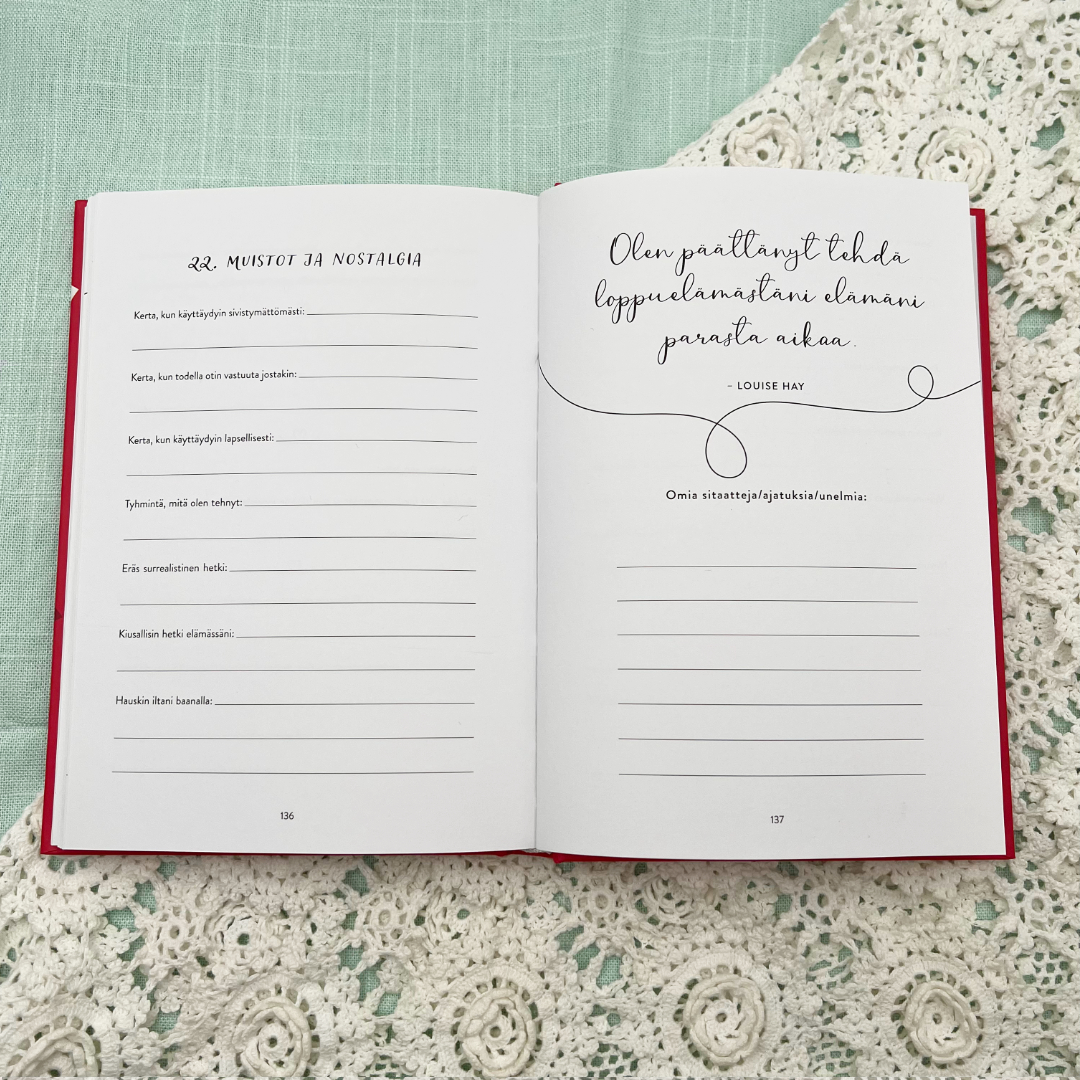 22. MUISTOT JA NOSTALGIA
Kerta, kun käyttäydyin sivistymättömästi:
Kerta, kun todella otin vastuuta jostakin:
Kerta, kun käyttäydyin lapsellisesti:
Tyhmintä, mitä olen tehnyt:
Eräs surrealistinen hetki:
Kiusallisin hetki elämässäni:
Hauskin iltani baanalla:
136
Olen päättänyt tehdä
loppuelämästäni elämäni
parasta aikaa.
– LOUISE HAY
Omia sitaatteja/ajatuksia/unelmia:
137